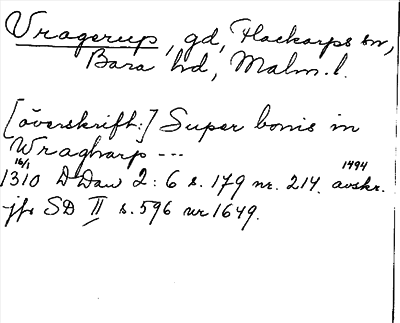 Vragerup, gd, Flackarps sn,
Bara hd, Malm.l.
[överskrift:] Super bonis in
Wragthorp ---
1310 16/1 DDan 2:6 s. 179 nr. 214. 1494 avskr.
jfr SD II s. 596 nr 1649.